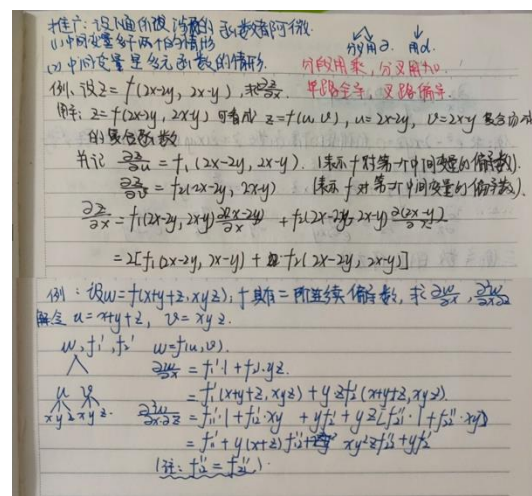 推广：设下面所设涉及的函数都可微.
(1)中间变量多于两个的情形
(2)中间变量是多元函数的情形.
分叉用∂. 用d.
分段用乘，分叉用加.
单路全导，叉路偏导.
例. 设z=f(2x-2y, 2x-y), 求∂z/∂x.
解: z=f(2x-2y, 2x-y)可看成 z=f(u,v), u=2x-2y, v=2x-y 复合
的复合函数
并记 ∂z/∂u = f₁(2x-2y, 2x-y). (表示f对第一个中间变量的偏导数).
∂z/∂v = f₂(2x-2y, 2x-y) (表示f对第二个中间变量的偏导数).
∂z/∂x = f₁(2x-2y, 2x-y) ∂(2x-2y)/∂x + f₂(2x-2y, 2x-y) ∂(2x-y)/∂x
= 2[f₁(2x-2y, 2x-y) + f₂(2x-2y, 2x-y)]
例: 设w=f(x+y+z, xyz), f具有二阶连续偏导数, 求∂w/∂x, ∂²w/∂x∂z
解令 u=x+y+z, v=xyz.
w, f₁', f₂' w=f(u,v).
∂w/∂x = f₁'·1 + f₂'·yz
u v
= f₁'(x+y+z, xyz) + yzf₂'(x+y+z, xyz).
xyz xyz. ∂²w/∂x∂z = f₁₁''·1 + f₁₂''·xy + yf₂' + yz[f₂₁''·1 + f₂₂''·xy]
= f₁₁'' + y(x+z)f₁₂'' + xy²zf₂₂'' + yf₂'
(注: f₁₂'' = f₂₁'').